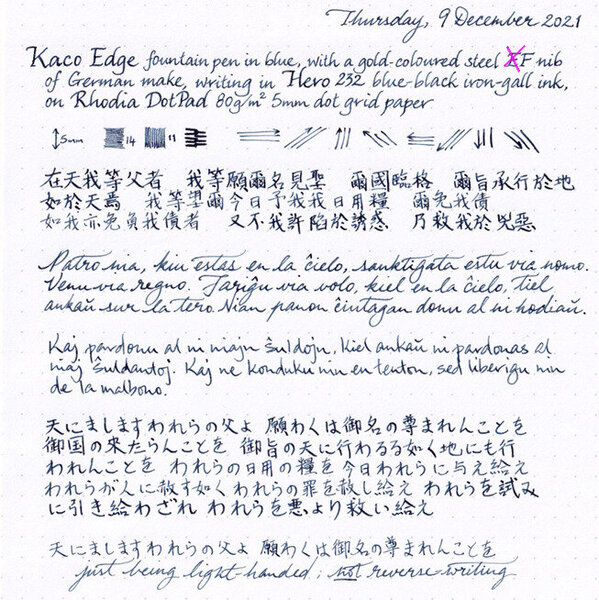 Thursday, 9 December 2021
Kaco Edge fountain pen in blue, with a gold-coloured steel EF nib
of German make, writing in Hero 232 blue-black iron-gall ink,
on Rhodia DotPad 80g/m² 5mm dot grid paper
5mm 14 11
在天我等父者 我等願爾名見聖 爾國臨格 爾旨承行於地
如於天焉 我等望爾今日予我我日用糧 爾免我債
如我亦免負我債者 又不我許陷於誘惑 乃救我於兇惡
Patro nia, kiu estas en la ĉielo, sanktigata estu via nomo.
Venu via regno. Fariĝu via volo, kiel en la ĉielo, tiel
ankaŭ sur la tero. Nian panon ĉiutagan donu al ni hodiaŭ.
Kaj pardonu al ni niajn ŝuldojn, kiel ankaŭ ni pardonas al
niaj ŝuldantoj. Kaj ne konduku nin en tenton, sed liberigu nin
de la malbono.
天にましますわれらの父よ 願わくは御名の尊まれんことを
御国の来たらんことを 御旨の天に行わるる如く地にも行
われんことを われらの日用の糧を今日われらに与え給え
われらが人に赦す如くわれらの罪を赦し給え われらを試み
に引き給わざれ われらを悪より救い給え
天にましますわれらの父よ 願わくは御名の尊まれんことを
just being light-handed; not reverse-writing